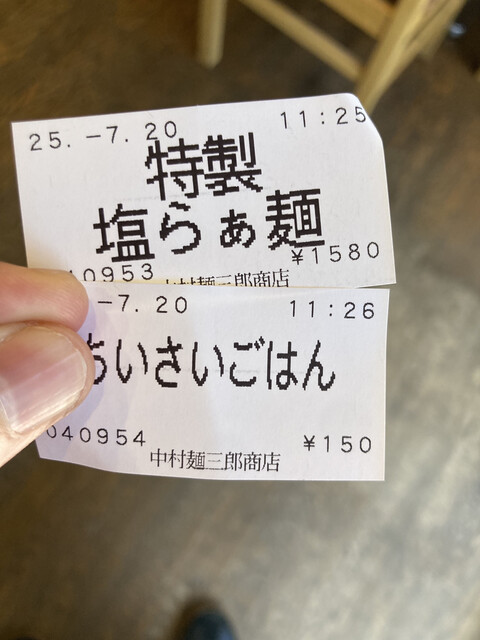 25.-7.20 11:25
特製
塩らぁ麺
¥1580
中村麺三郎商店
-7.20 11:26
ちいさいごはん
040954 ¥150
中村麺三郎商店